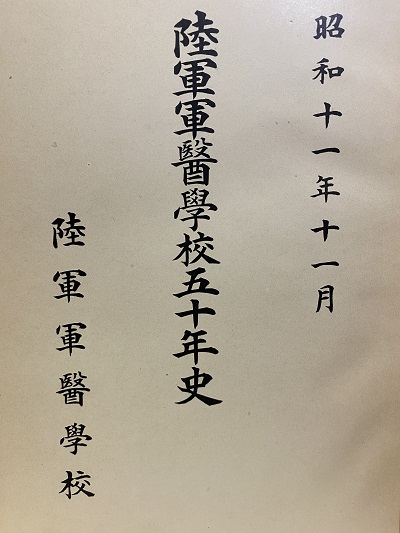 昭和十一年十一月
陸軍軍醫學校五十年史
陸軍軍醫學校